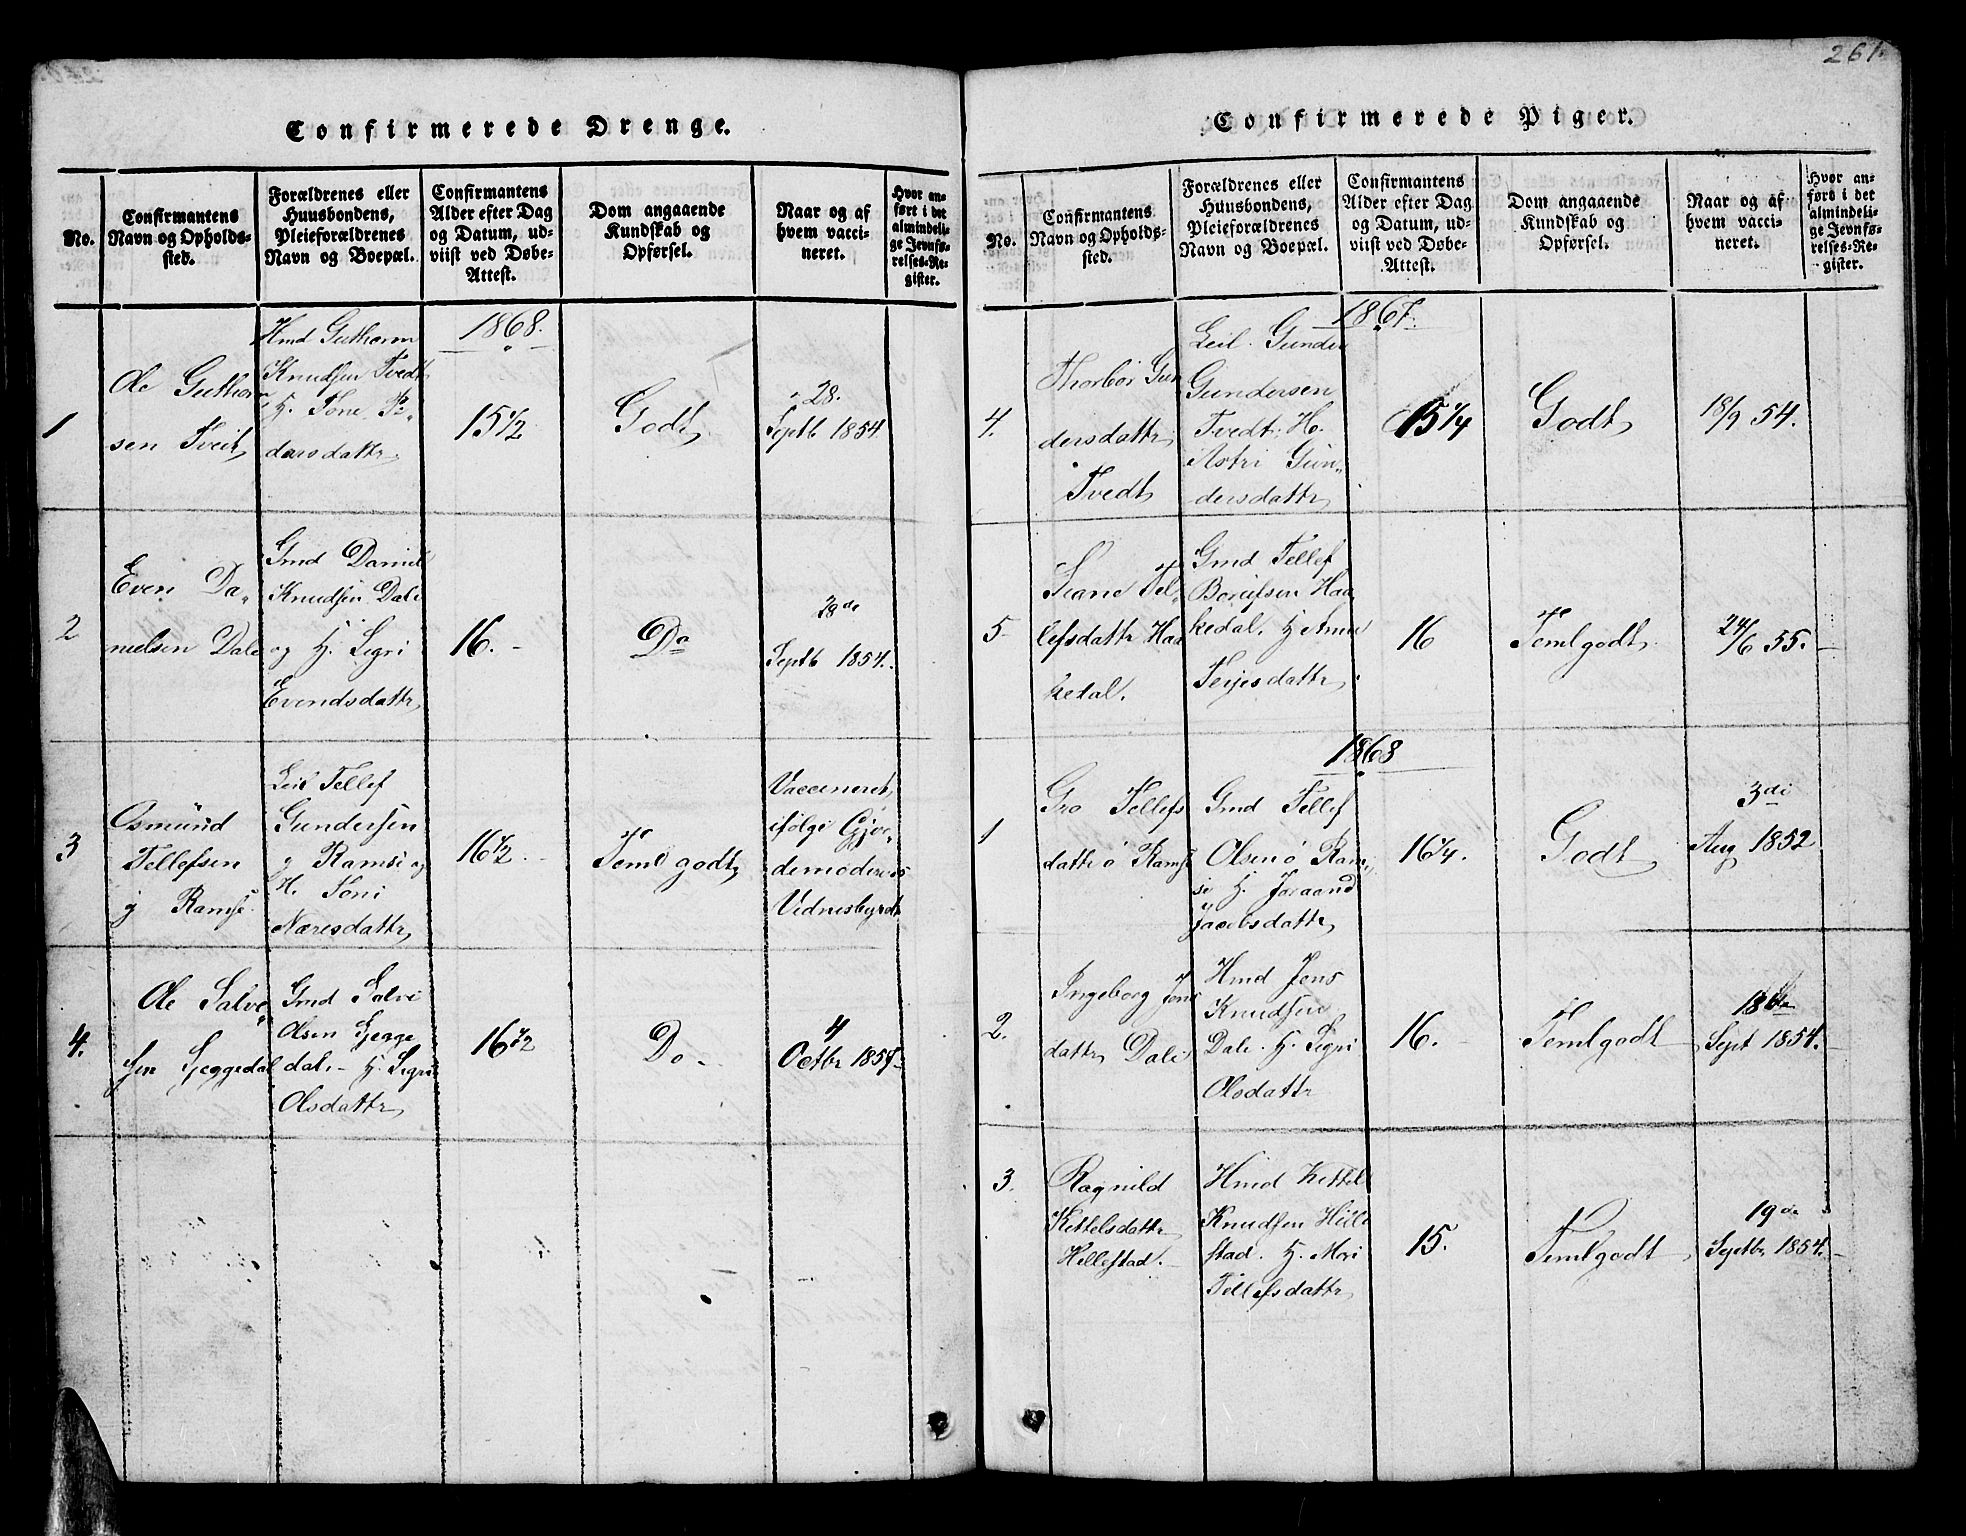 261.
Confirmerede Drenge.
No.
Confirmantens
Navn og Opholds-
sted.
Forældrenes eller
Huusbondens,
Pleieforældrenes
Navn og Boepæl.
Confirmantens
Alder efter Dag
og Datum, ud-
viist ved Døbe-
Attest.
Dom angaaende
Kundskab og
Opførsel.
Naar og af
hvem vacci-
neret.
Hvor an-
ført i det
almindeli-
ge Jevnfø-
relses-Re-
gister.
1868.
1
Ole Guthorm
sen Tveit
Hmd Guthorm
Knudsen Tvedt
H. Tone Pe-
dersdattr
15 1/2
Godt
28.
Septb 1854
2
Even Da-
nielsen Dale
Gmd Daniel
Knudsen Dale
og H. Sigri
Evendsdattr
16.
Do
Septb 1854.
3
Osmund
Tellefsen
Ramse
Leil Tellef
Gundersen
Ramse og
H. Toni
16 1/2
Teml godt
Vaccineret
ifølge Gjor-
demoderens
Vidnesbyrd
4.
Ole Salve-
sen Gjeggedal
Gmd Salve
Olsen Gjegge
dal. H. Sigri
Olsdattr
16 1/2
Do
4
Octbr
Confirmerede Piger.
No.
Confirmantens
Navn og Opholds-
sted.
Forældrenes eller
Huusbondens,
Pleieforældrenes
Navn og Boepæl.
Confirmantens
Alder efter Dag
og Datum, ud-
viist ved Døbe-
Attest.
Dom angaaende
Kundskab og
Opførsel.
Naar og af
hvem vacci-
neret.
Hvor an-
ført i det
almindeli-
ge Jevnfø-
relses-Re-
gister.
1867.
4.
Thorbor Gun
dersdattr
Tvedt
Leil. Gunder
Gundersen
Tvedt. H.
Astri Gun-
dersdattr
15 1/4
Godt
18/9 54.
5
Tel-
lefsdattr Haa
kedal.
Gmd Tellef
Haa
kedal. H
Terjesdattr
16
Temlgodt
24/6 55.
1868
1
Gro Tellefs
dattr ø Ramse
Gmd Tellef
Olsen ø Ram-
se H. Joraand
Jacobsdattr
16 1/4.
Godt
3die
Aug 1852
2.
Ingeborg Jens
dattr Dale
Hmd Jens
Knudsen
Dale. H. Sigri
Olsdattr
16.
Temlgodt
18de
Sept 1854.
3.
Ragnild
Kettelsdattr
Hillestad.
Hmd Kettel
Knudsen Hille
stad. H. Mari
Tellefsdattr
15.
Temlgodt
19de
Septbr 1854.